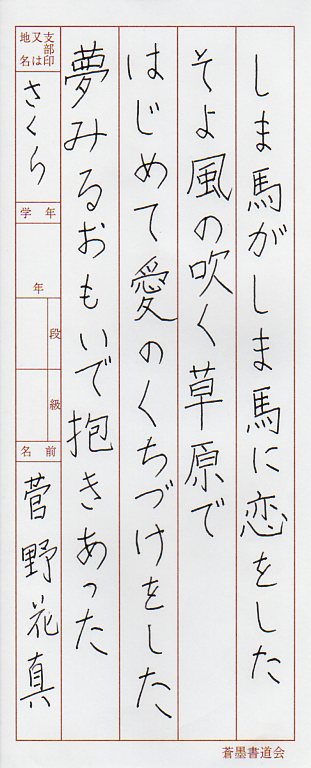 しま馬がしま馬に恋をした
そよ風の吹く草原で
はじめて愛のくちづけをした
夢みるおもいで抱きあった
支部印又は地名
さくら
学年
年
段
級
名前
菅野花真
蒼墨書道会